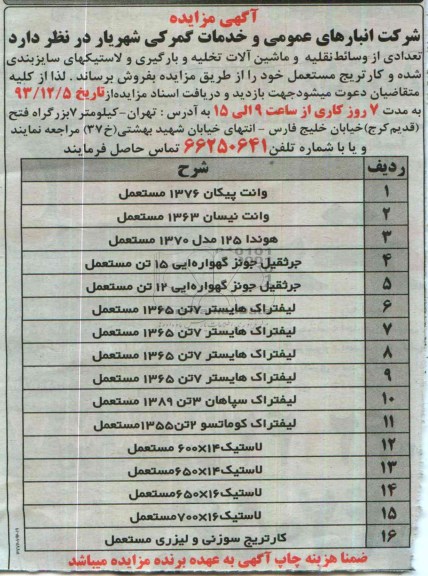 آگهی مزایده
شرکت انبارهای عمومی و خدمات گمرکی شهریار در نظر دارد
تعدادی از وسائط‌نقلیه و ماشین آلات تخلیه و بارگیری و لاستیکهای سایزبندی
شده و کارتریج مستعمل خود را از طریق مزایده بفروش برساند . لذا از کلیه
متقاضیان دعوت میشودجهت بازدید و دریافت اسناد مزایده‌از تاریخ ۹۳/۱۲/۵
به مدت ۷ روز کاری از ساعت ۹ الی ۱۵ به آدرس : تهران-کیلومتر۷بزرگراه فتح
(قدیم‌کرج)خیابان خلیج فارس - انتهای خیابان شهید بهشتی(خ۳۷) مراجعه نمایند
و یا با شماره تلفن ۶۶۲۵۰۶۴۱ تماس حاصل فرمایند
ردیف شرح
۱ وانت پیکان ۱۳۷۶ مستعمل
۲ وانت نیسان ۱۳۶۳ مستعمل
۳ هوندا ۱۲۵ مدل ۱۳۷۰ مستعمل
۴ جرثقیل جونز گهواره‌ایی ۱۵ تن مستعمل
۵ جرثقیل جونز گهواره‌ایی ۱۲ تن مستعمل
۶ لیفتراک هایستر ۷تن ۱۳۶۵ مستعمل
۷ لیفتراک هایستر ۷تن ۱۳۶۵ مستعمل
۸ لیفتراک هایستر ۷تن ۱۳۶۵ مستعمل
۹ لیفتراک هایستر ۷تن ۱۳۶۵ مستعمل
۱۰ لیفتراک سپاهان ۳تن ۱۳۸۹ مستعمل
۱۱ لیفتراک کوماتسو ۲تن۱۳۵۵مستعمل
۱۲ لاستیک۱۴×۶۰۰ مستعمل
۱۳ لاستیک۱۴×۶۵۰مستعمل
۱۴ لاستیک۱۶×۶۵۰مستعمل
۱۵ لاستیک۱۶×۷۰۰مستعمل
۱۶ کارتریج سوزنی و لیزری مستعمل
ضمنا هزینه چاپ آگهی به عهده برنده مزایده میباشد